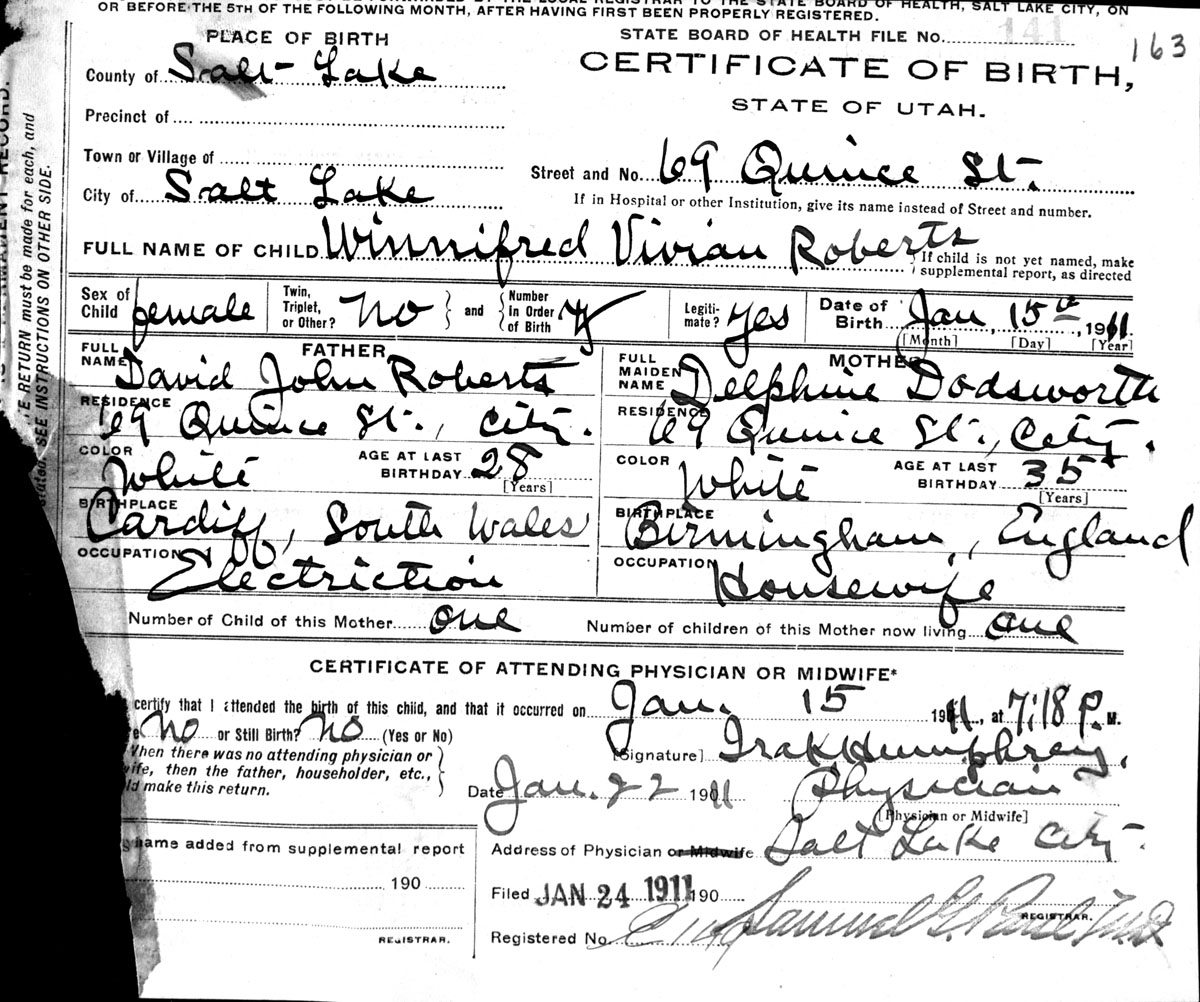 OR BEFORE THE 5TH OF THE FOLLOWING MONTH, AFTER HAVING FIRST BEEN PROPERLY REGISTERED.
PLACE OF BIRTH
STATE BOARD OF HEALTH FILE No. 141
163
County of Salt Lake
CERTIFICATE OF BIRTH,
STATE OF UTAH.
Precinct of
Town or Village of
Street and No. 69 Quince St.
City of Salt Lake
If in Hospital or other Institution, give its name instead of Street and number.
FULL NAME OF CHILD Winnifred Vivian Roberts
If child is not yet named, make supplemental report, as directed
Sex of Child female Twin, Triplet, or Other? No and Number in Order of Birth Legitimate? Yes Date of Birth Jan, 15th, 1911.
[Month] [Day] [Year]
FATHER
FULL NAME David John Roberts
RESIDENCE 69 Quince St., City.
COLOR White AGE AT LAST BIRTHDAY 28 [Years]
BIRTHPLACE Cardiff, South Wales
OCCUPATION Electriction
MOTHER
FULL MAIDEN NAME Delphine Dodsworth
RESIDENCE 69 Quince St., City.
COLOR White AGE AT LAST BIRTHDAY 35 [Years]
BIRTHPLACE Birmingham, England
OCCUPATION Housewife
Number of Child of this Mother one Number of children of this Mother now living one
CERTIFICATE OF ATTENDING PHYSICIAN OR MIDWIFE*
certify that I attended the birth of this child, and that it occurred on Jan. 15 1911, at 7:18 P. M.
No or Still Birth? No (Yes or No)
[Signature] Ira K Humphrey.
When there was no attending physician or
ife, then the father, householder, etc.,
ld make this return.
Date Jan. 22 1911 Physician
[Physician or Midwife]
Address of Physician or Midwife Salt Lake City.
name added from supplemental report
190
Filed JAN 24 1911 190
REGISTRAR.
Registered No.
REGISTRAR.
RETURN must be made for each, and
SEE INSTRUCTIONS ON OTHER SIDE.